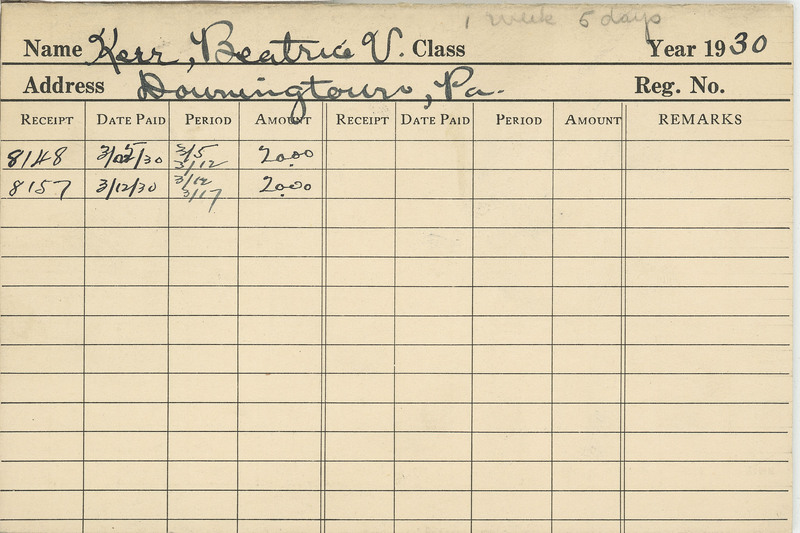 1 week 5 days
Name Kerr, Beatrice V. Class Year 1930
Address Downingtown, Pa. Reg. No.
RECEIPT DATE PAID PERIOD AMOUNT RECEIPT DATE PAID PERIOD AMOUNT REMARKS
8148 3/5/30 3/5 3/12 20.00
8157 3/12/30 3/12 3/17 20.00